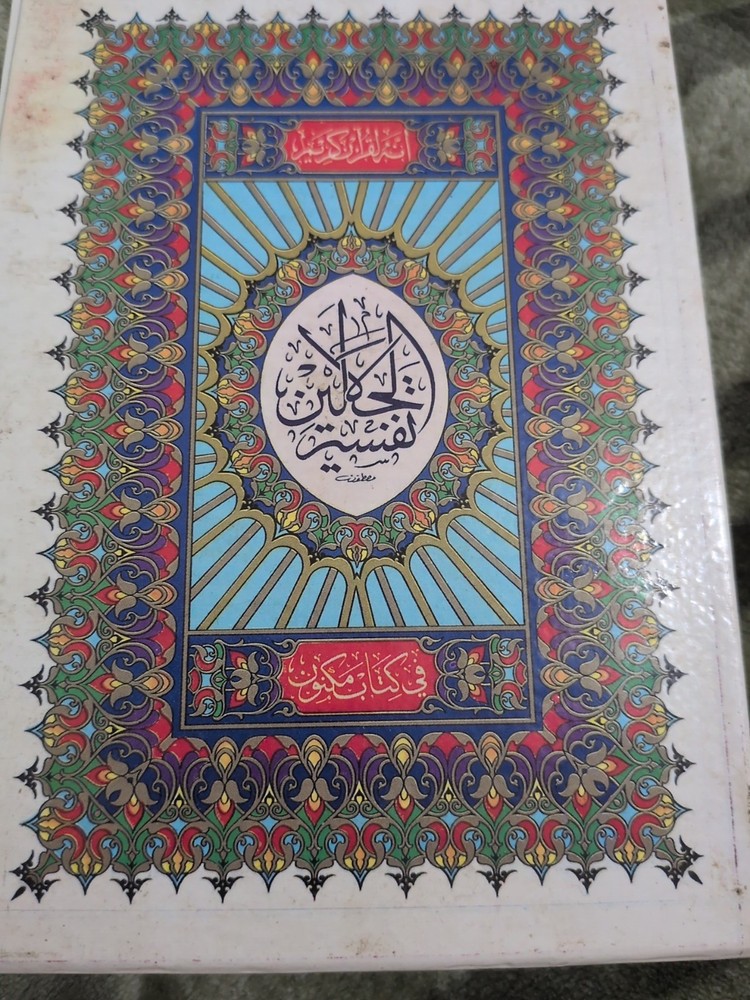 إنه لقرآن كريم
تفسير
الجلالين
مصطفى
في كتاب مكنون